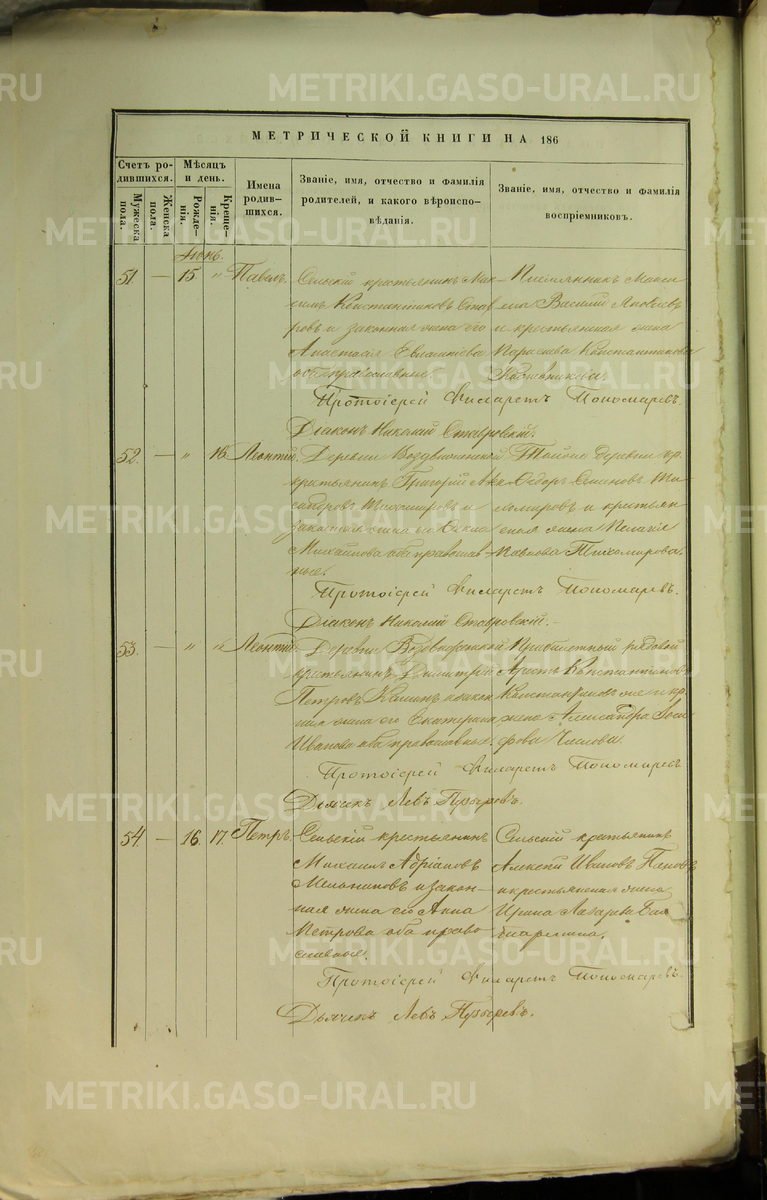 МЕТРИЧЕСКОЙ КНИГИ НА 186
Счетъ ро-
дившихся.
Мужеска
пола.
Женска
пола.
Мѣсяцъ
и день.
Рожде-
нія.
Креще-
нія.
Имена
родив-
шихся.
Званіе, имя, отчество и фамилія
родителей, и какого вѣроиспо-
вѣданія.
Званіе, имя, отчество и фамилія
воспріемниковъ.
Іюнь.
51. — 15. " Павелъ.
Сельскій крестьянинъ Мак-
симъ Константиновъ
ровъ и законная жена его
Анастасія
оба православные.
Василій Яковлев
и крестьянская жена
Параскева Константинова
Протоіерей Филаретъ Пономаревъ.
Діаконъ Николай Ставровскій.
52. — " 16. Леонтій.
Деревни Воздвиженской
крестьянинъ Григорій Алек-
сандровъ Тихомировъ и
законная жена его
Михайлова оба православ-
ные.
Тойже деревни кр.
Ѳедоръ Семеновъ Ти-
хомировъ и крестьян-
ская жена Пелагія
Павлова Тихомирова.
Протоіерей Филаретъ Пономаревъ.
Діаконъ Николай Ставровскій.
53. — " " Леонтій.
Деревни Воздвиженской
крестьянинъ Димитрій
Петровъ и закон-
ная жена его Екатерина
Иванова оба православные.
рядовой
Константинов
Константиновъ
жена Александра
Протоіерей Филаретъ Пономаревъ
Дьячекъ Левъ
54. — 16. 17. Петръ.
Сельскій крестьянинъ
Михаилъ Адріановъ
Мельниковъ и закон-
ная жена его Анна
Петрова оба право-
славные.
Сельскій крестьянинъ
Алексѣй Ивановъ Поповъ
и крестьянская жена
Ирина Лазарева
Протоіерей Филаретъ Пономаревъ.
Дьячекъ Левъ
METRIKI.GASO-URAL.RU